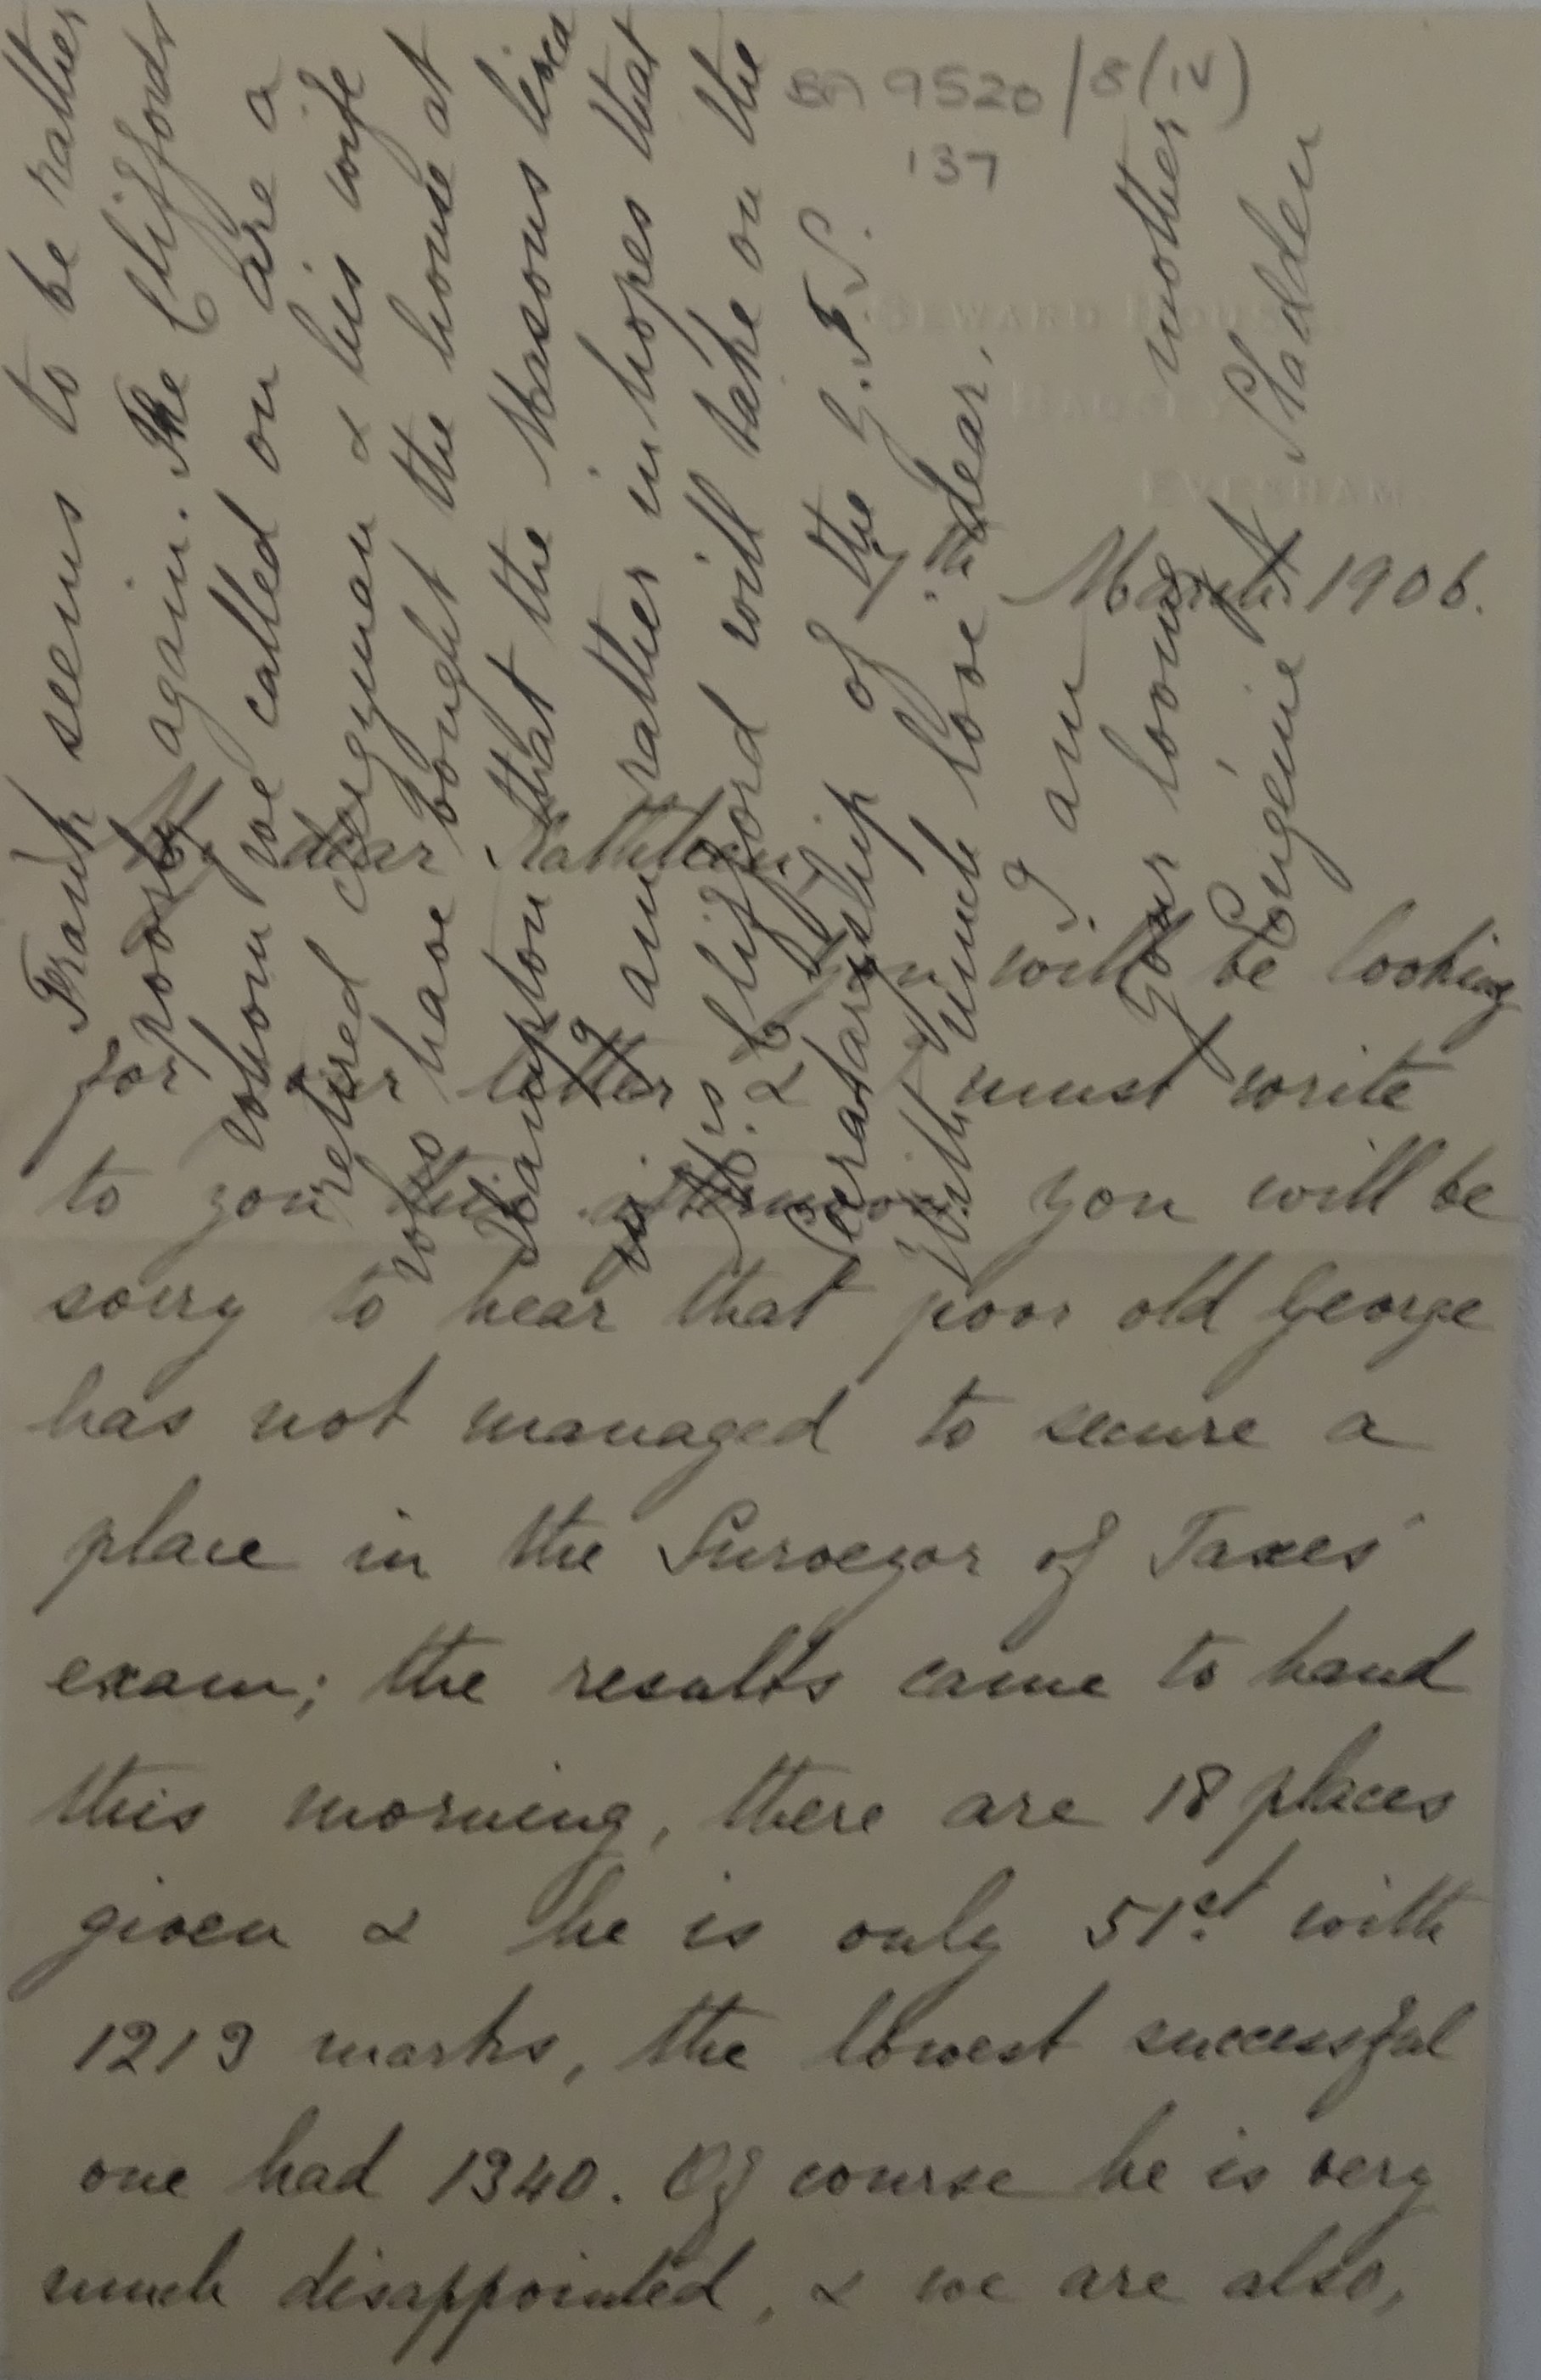 BA 9520/8(iv)
137
SEWARD HOUSE,
BADSEY,
EVESHAM.
7th March 1906.
My dear Kathleen,
You will be looking
for our letter & I must write
to you this afternoon. You will be
sorry to hear that poor old George
has not managed to secure a
place in the Surveyor of Taxes'
exam; the results came to hand
this morning, there are 18 places
given & he is only 51st. with
1213 marks, the lowest successful
one had 1340. Of course he is very
much disappointed, & we are also,
Frank seems to be rather
poorly again. The Cliffords
whom we called on are a
retired clergyman & his wife
who have bought the house at
Hampton that the Masons lived
in, I am rather in hopes that
Mrs Clifford will take on the
Secretaryship of the G.F.S.
With much love dear,
I am
Your loving mother
Eugénie Sladden